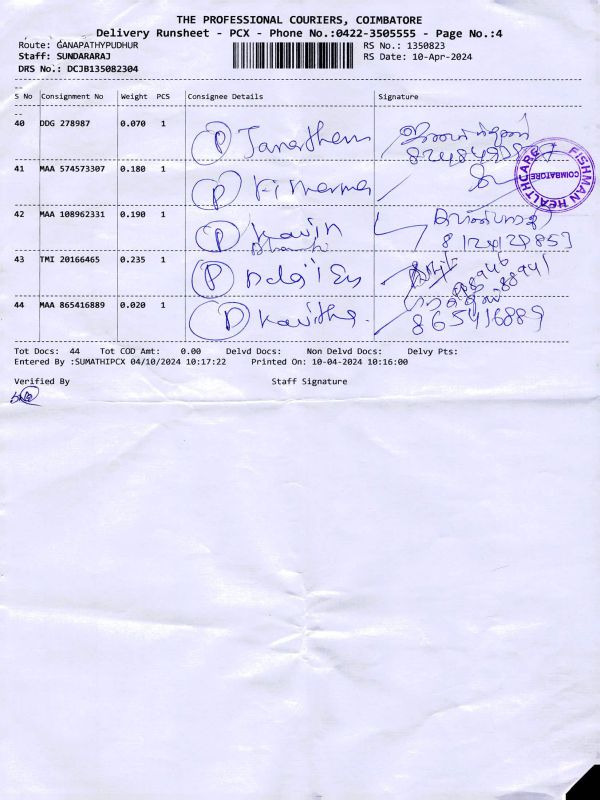 THE PROFESSIONAL COURIERS, COIMBATORE
Delivery Runsheet - PCX - Phone No.:0422-3505555 - Page No.:4
Route: GANAPATHYPUDHUR RS No.: 1350823
Staff: SUNDARARAJ RS Date: 10-Apr-2024
DRS No.: DCJB135082304
S No Consignment No Weight PCS Consignee Details Signature
40 DDG 278987 0.070 1 P
41 MAA 574573307 0.180 1 P
FISHMAN HEALTHCARE COIMBATORE
42 MAA 108962331 0.190 1 P Kavin
43 TMI 20166465 0.235 1 P
44 MAA 865416889 0.020 1 P Kavitha
865416889
Tot Docs: 44 Tot COD Amt: 0.00 Delvd Docs: Non Delvd Docs: Delvy Pts:
Entered By :SUMATHIPCX 04/10/2024 10:17:22 Printed On: 10-04-2024 10:16:00
Verified By Staff Signature